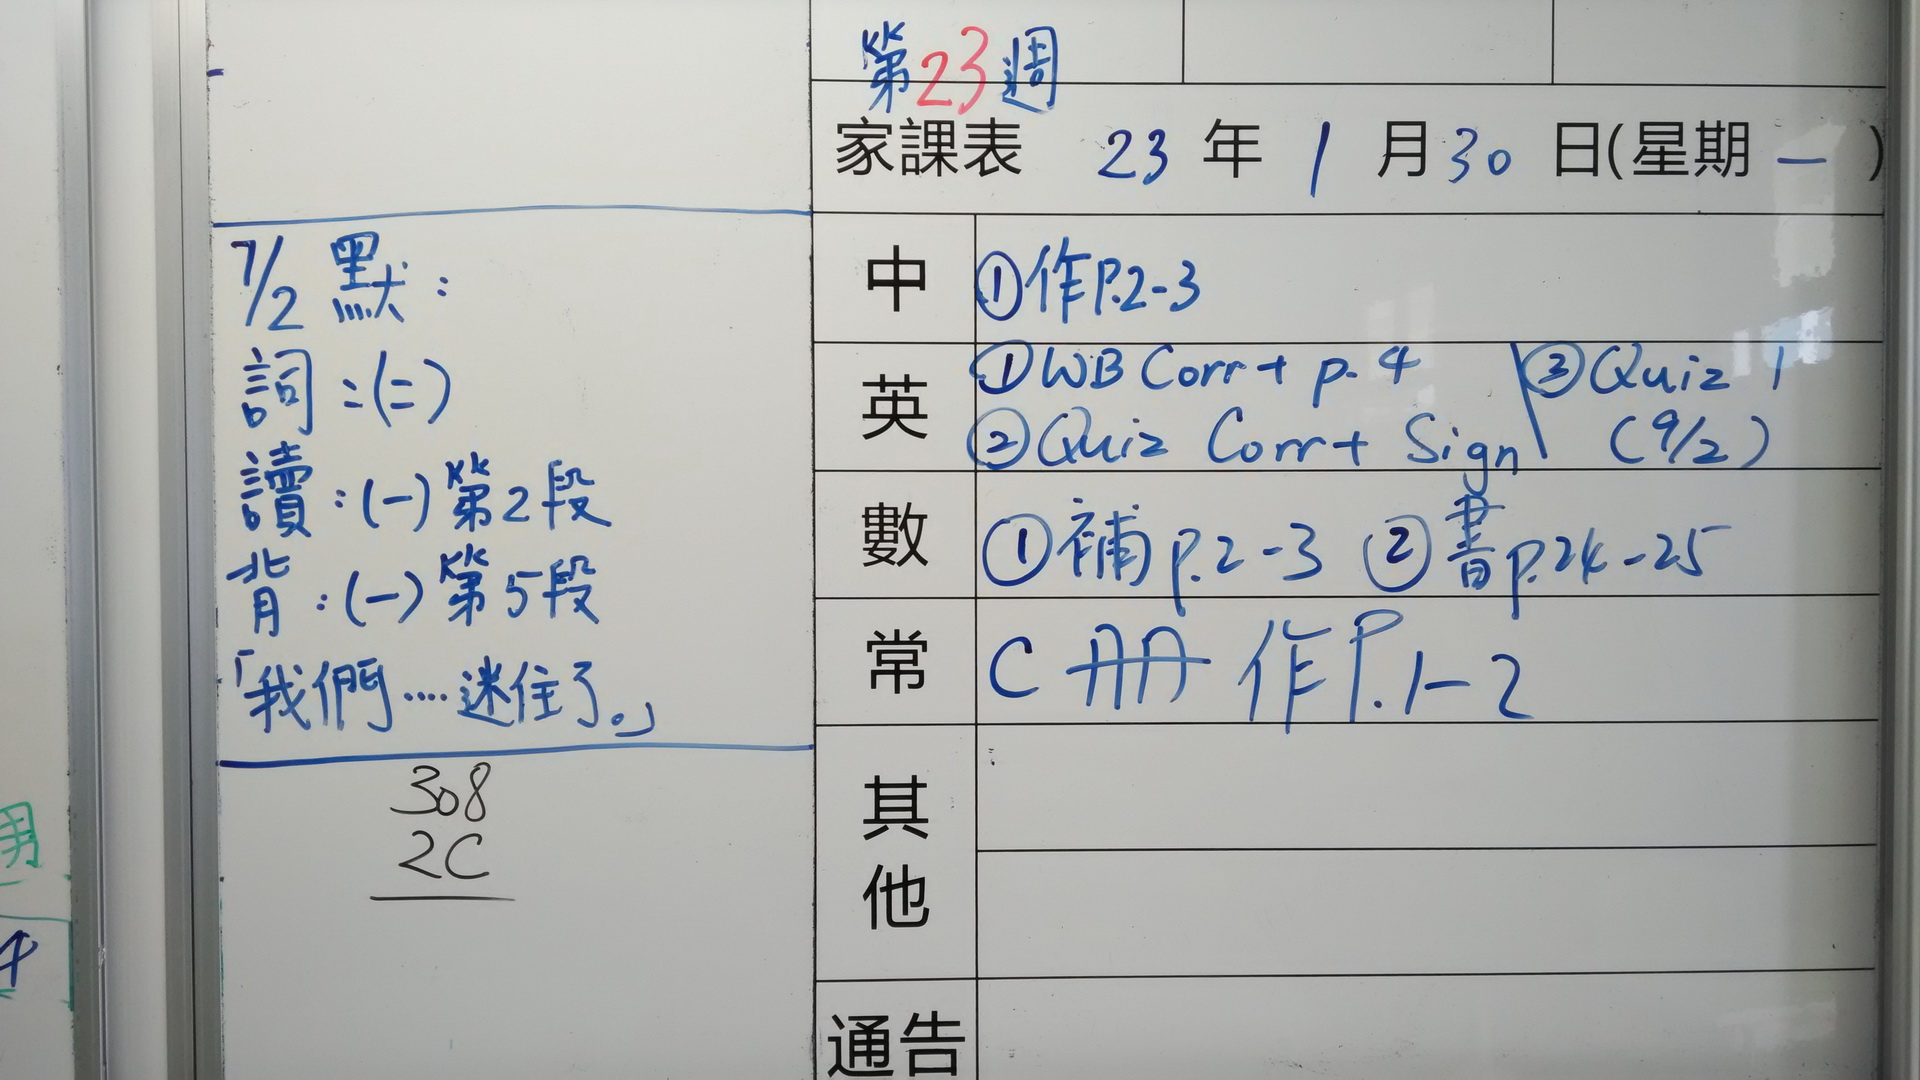 第23週
家課表 23年1月30日(星期一)
中 ①作P.2-3
英 ①WB Corr+ p.4 ③Quiz 1
②Quiz Corr+ Sign (9/2)
數 ①補p.2-3 ②書p.24-25
常 C冊 作P.1-2
其他
通告
7/2 默:
詞:(二)
讀:(一)第2段
背:(一)第5段
「我們....迷住了。」
308
2C
男